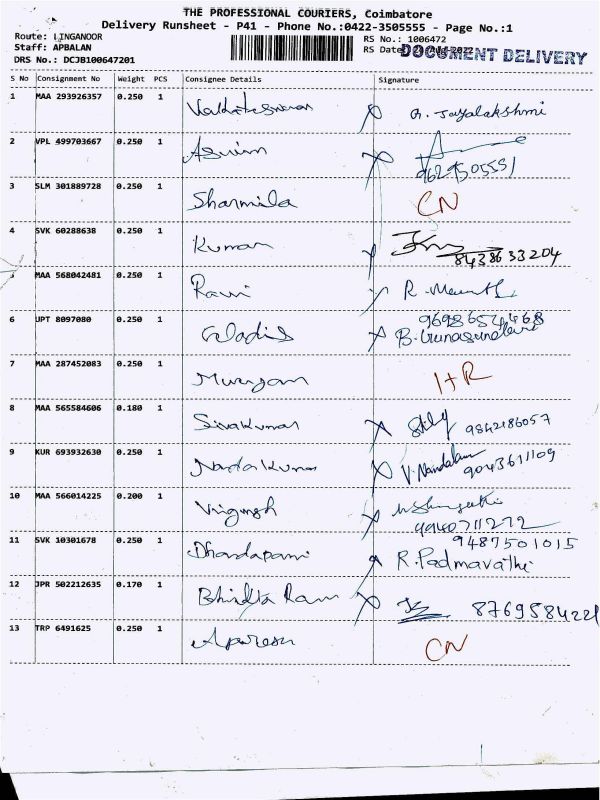 THE PROFESSIONAL COURIERS, Coimbatore
Delivery Runsheet - P41 - Phone No.:0422-3505555 - Page No.:1
Route: LINGANOOR
RS No.: 1006472
Staff: APBALAN
RS Date:
DOCUMENT DELIVERY
DRS No.: DCJB100647201
S No Consignment No Weight PCS Consignee Details Signature
1 MAA 293926357 0.250 1 Venkateswaran G. Jayalakshmi
2 VPL 499703667 0.250 1 Aswim
9629505551
3 SLM 301889728 0.250 1 Sharmila CN
4 SVK 60288638 0.250 1 Kumar
8438633204
5 MAA 568042481 0.250 1 Ravi R.
6 UPT 8097080 0.250 1 Gladis 9698654468
B. Gunasundari
7 MAA 287452083 0.250 1 Murugan I+R
8 MAA 565584606 0.180 1 Sivakumar 9842186057
9 KUR 693932630 0.250 1 Nanda Kumar V. Nandakumar 9043611109
10 MAA 566014225 0.200 1 Vignesh
9940711272
11 SVK 10301678 0.250 1 Dhandapani 9487501015
R. Padmavathi
12 JPR 502212635 0.170 1 Ram 8769584221
13 TRP 6491625 0.250 1 CN